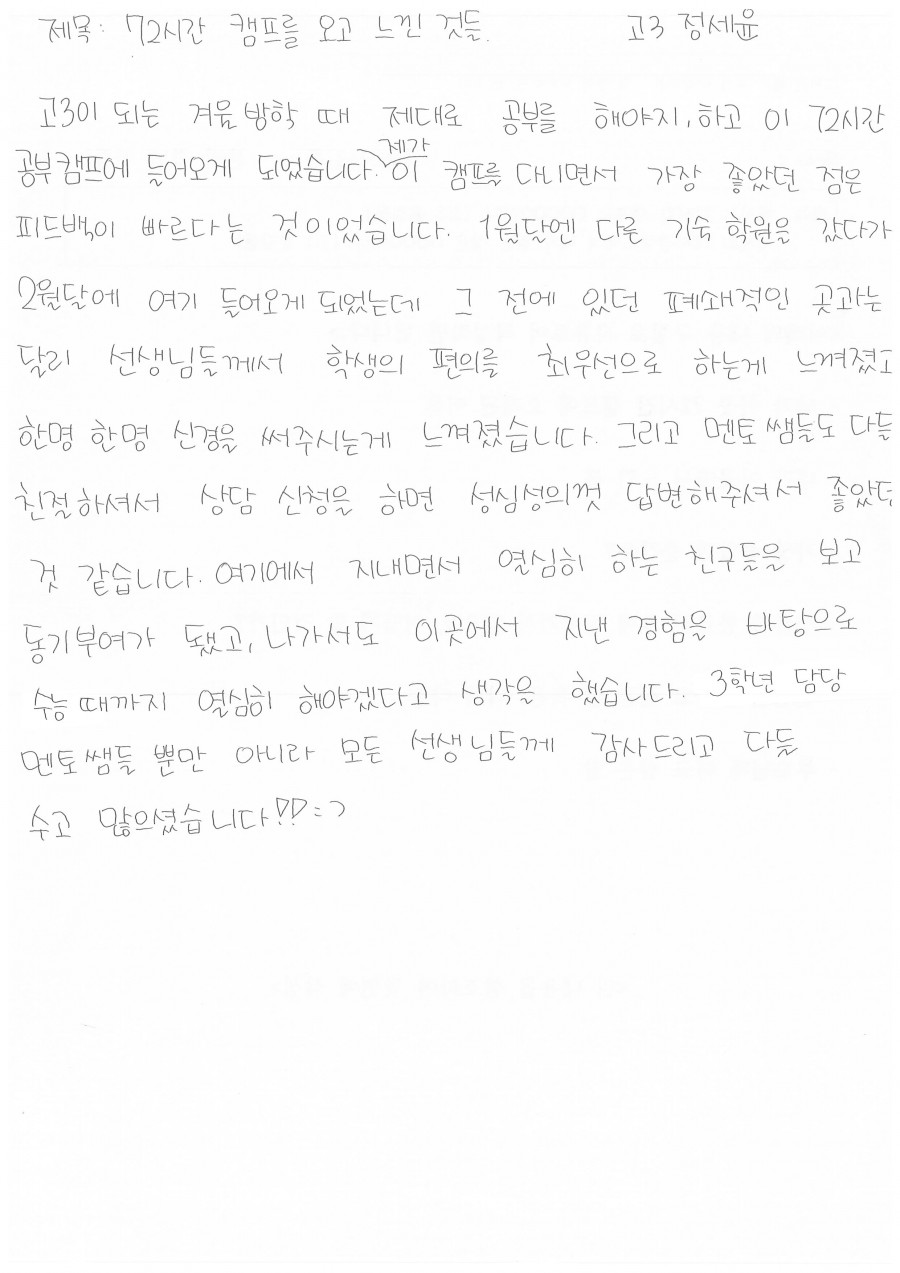 제목: 72시간 캠프를 오고 느낀 것들. 고3 정세윤
고3이 되는 겨울방학 때 제대로 공부를 해야지, 하고 이 72시간
공부캠프에 들어오게 되었습니다. 제가 이 캠프를 다니면서 가장 좋았던 점은
피드백이 빠르다는 것이었습니다. 1월달엔 다른 기숙학원을 갔다가
2월달에 여기 들어오게 되었는데 그 전에 있던 폐쇄적인 곳과는
달리 선생님들께서 학생의 편의를 최우선으로 하는게 느껴졌고
한명 한명 신경을 써주시는게 느껴졌습니다. 그리고 멘토쌤들도 다들
친절하셔서 상담 신청을 하면 성심성의껏 답변해주셔서 좋았던
것 같습니다. 여기에서 지내면서 열심히 하는 친구들을 보고
동기부여가 됐고, 나가서도 이곳에서 지낸 경험을 바탕으로
수능 때까지 열심히 해야겠다고 생각을 했습니다. 3학년 담당
멘토쌤들 뿐만 아니라 모든 선생님들께 감사드리고 다들
수고 많으셨습니다!!=)